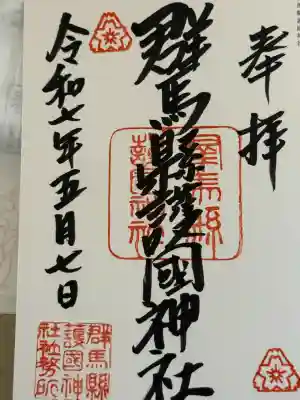 奉拝
群馬縣護國神社
令和七年五月七日
群馬縣
護國神社
群馬縣
護國神
社社務所